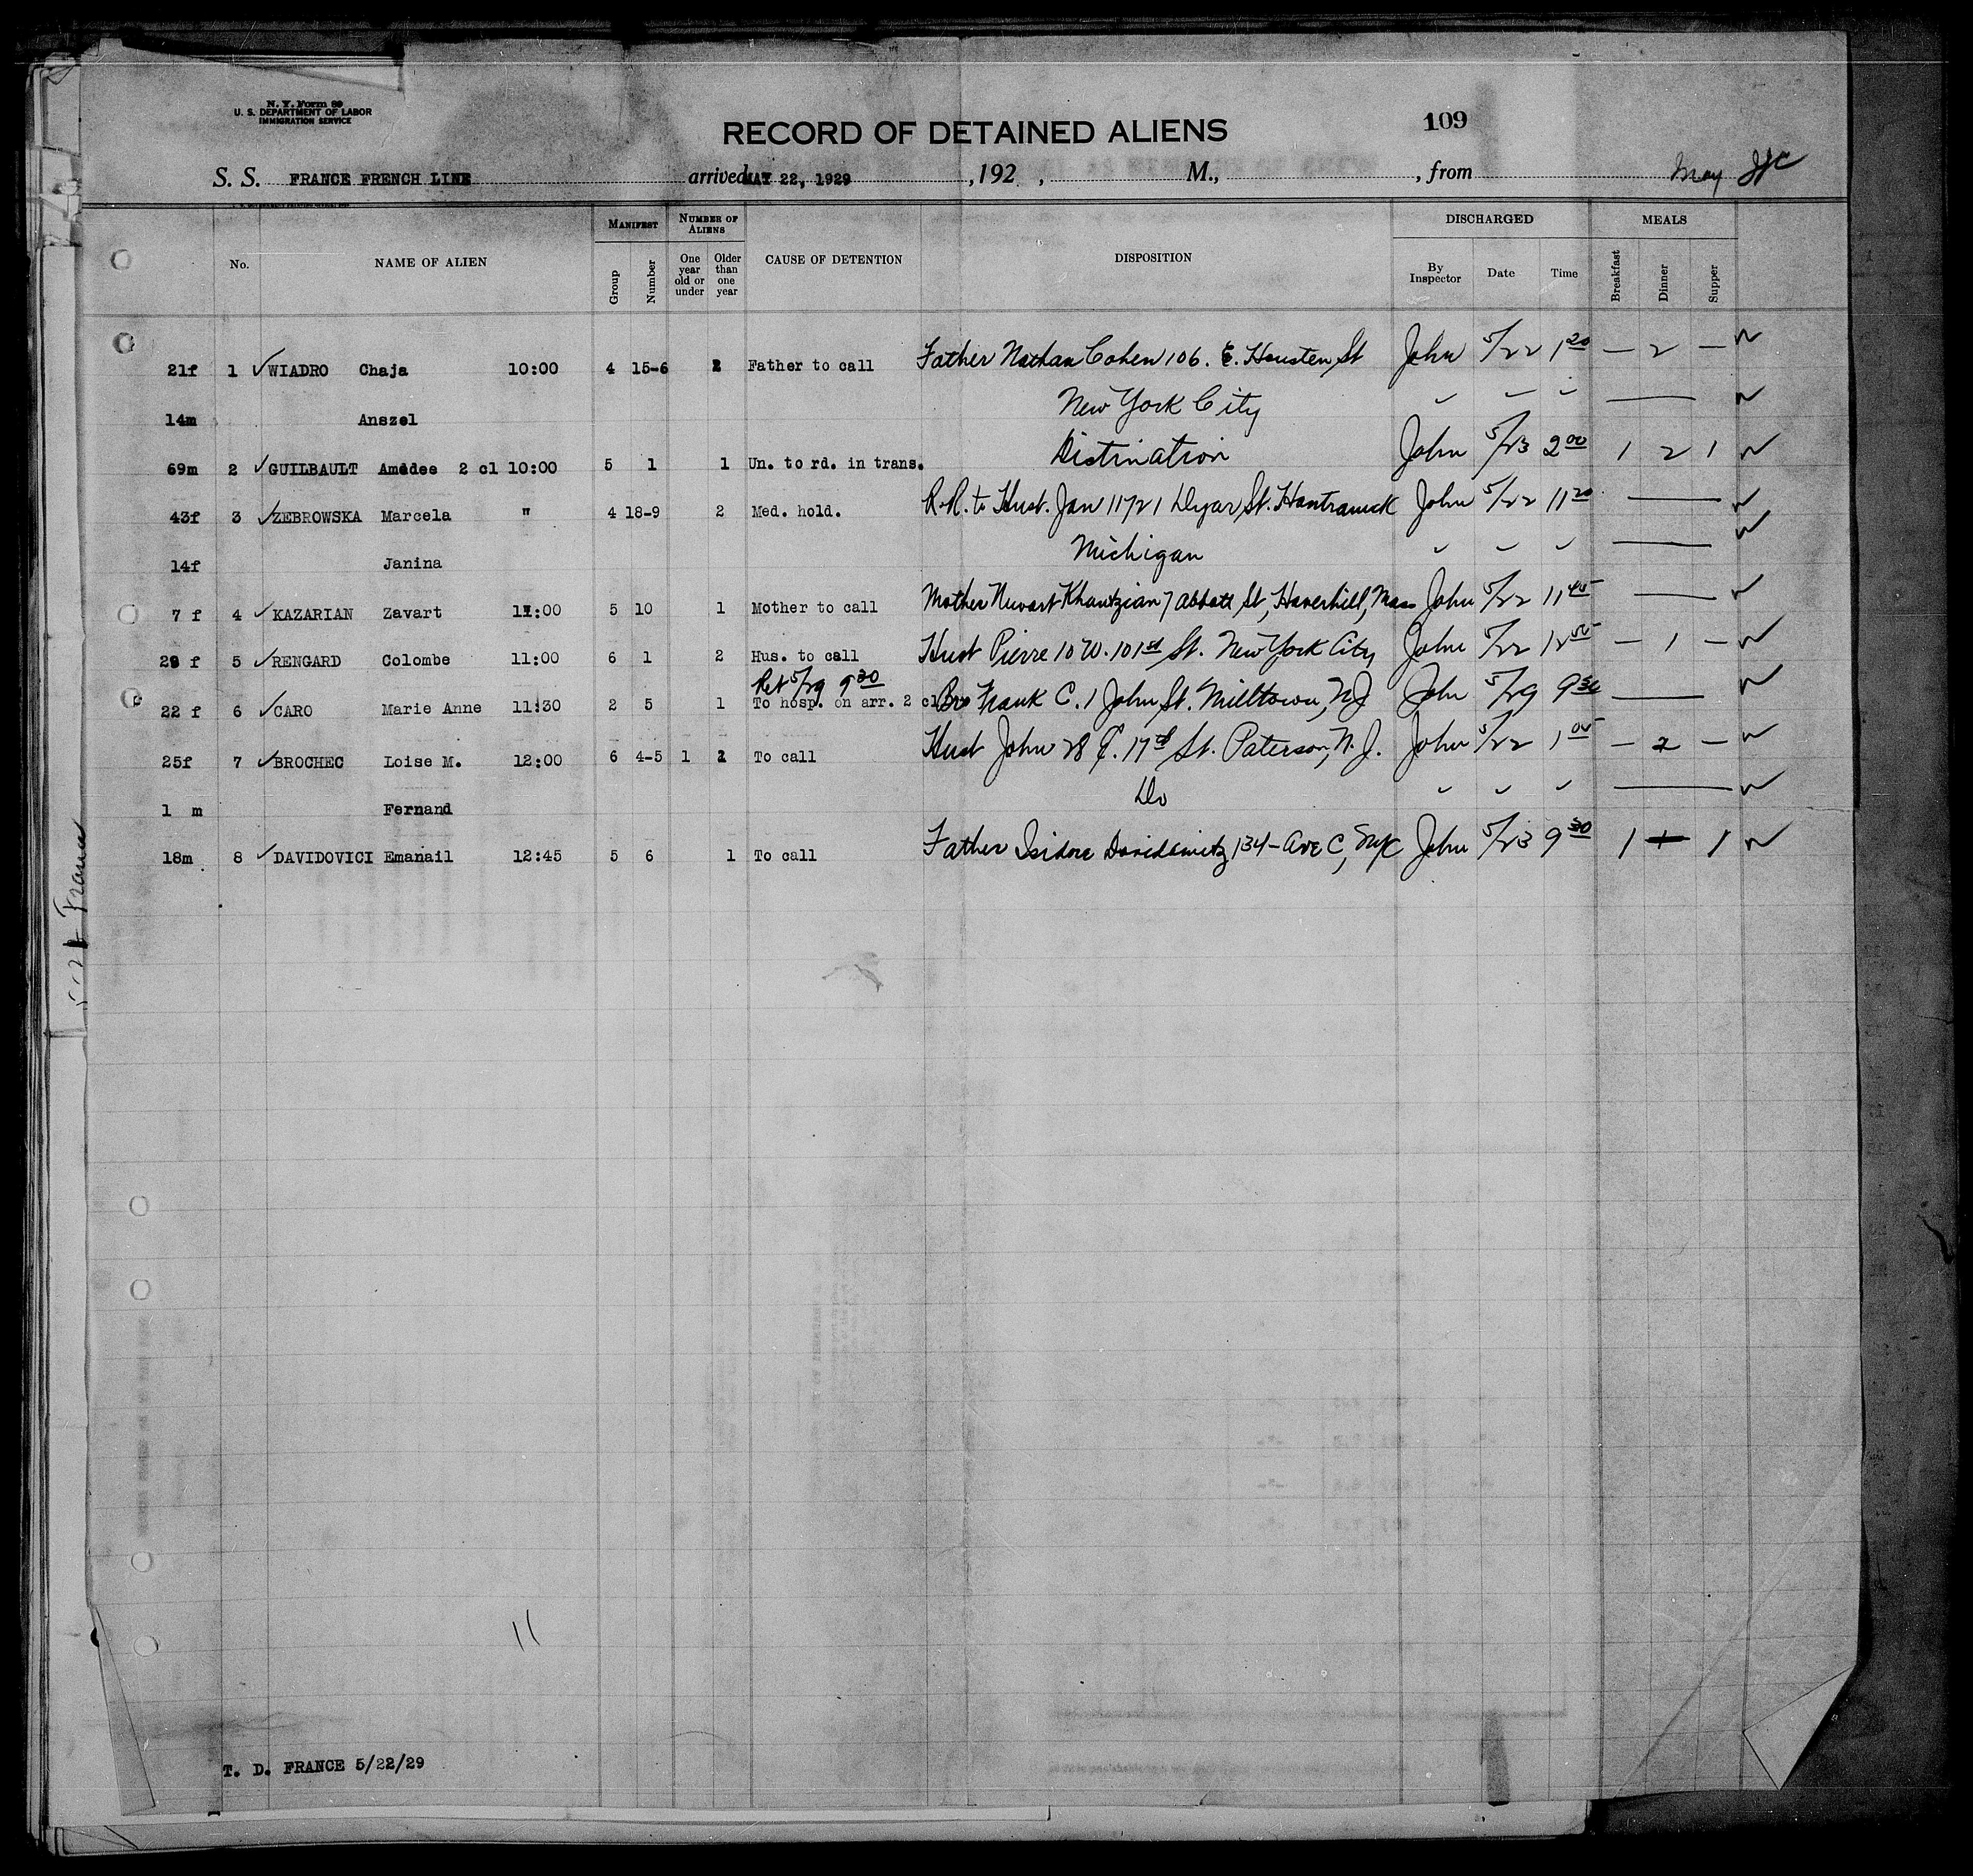 N. Y. Form 89
U. S. DEPARTMENT OF LABOR
IMMIGRATION SERVICE
RECORD OF DETAINED ALIENS
109
S. S. FRANCE FRENCH LINE arrived MAY 22, 1929, 192 , M., , from May
No. NAME OF ALIEN MANIFEST NUMBER OF ALIENS CAUSE OF DETENTION DISPOSITION DISCHARGED MEALS
Group Number One year old or under Older than one year By Inspector Date Time Breakfast Dinner Supper
21f 1 ✓ WIADRO Chaja 10:00 4 15-6 2 Father to call Father Nathan Cohen 106. E. Housten St John 5/22 1 20 — 2 —
14m Anszel New York City
69m 2 ✓ GUILBAULT Amédee 2 cl 10:00 5 1 1 Un. to rd. in trans. Distination John 5/23 2 00 1 2 1
43f 3 ✓ ZEBROWSKA Marcela " 4 18-9 2 Med. hold. R.R. to Husb. Jan 11721 Dyar St. Hamtramck John 5/22 11 20
14f Janina Michigan
7 f 4 ✓ KAZARIAN Zavart 11:00 5 10 1 Mother to call Mother Nuvart Khantzian 7 Abbott St, Haverhill, Mass John 5/22 11 45
29 f 5 ✓ RENGARD Colombe 11:00 6 1 2 Hus. to call Husb Pierre 10 W. 101st St. New York City John 5/22 12 55 — 1 —
Ret 5/29 9 30
22 f 6 ✓ CARO Marie Anne 11:30 2 5 1 To hosp. on arr. 2 cl Bro Frank C. 1 John St. Milltown, NJ John 5/29 9 30
25f 7 ✓ BROCHEC Loise M. 12:00 6 4-5 1 1 To call Husb John 28 E. 17th St. Paterson, N. J. John 5/22 1 00 — 2 —
1 m Fernand Do
18m 8 ✓ DAVIDOVICI Emanail 12:45 5 6 1 To call Father Isidore Davidowitz 134 - Ave C, NYC John 5/23 9 30 1 1 1
France
11
T. D. FRANCE 5/22/29